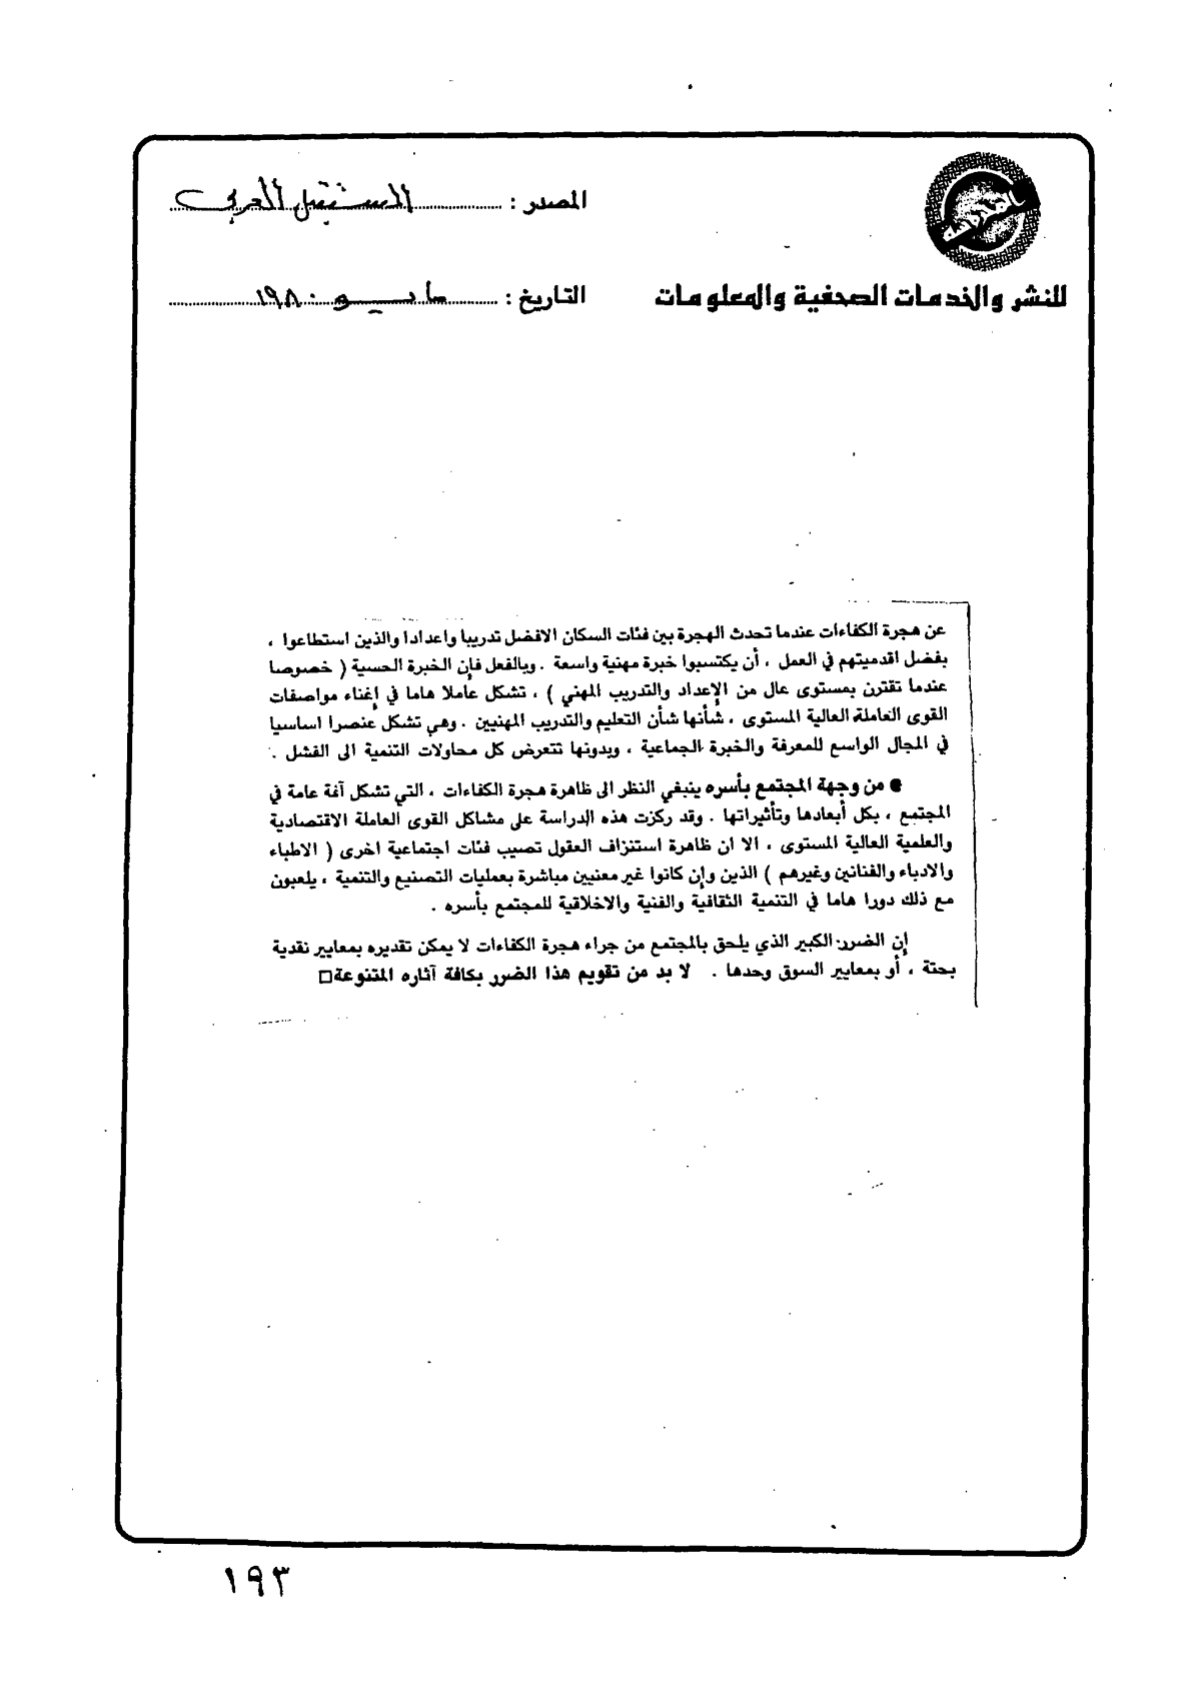 المصدر : المستقبل العربي
للنشر والخدمات الصحفية والمعلومات
التاريخ : مايو ١٩٨٠
عن هجرة الكفاءات عندما تحدث الهجرة بين فئات السكان الافضل تدريبا واعدادا والذين استطاعوا ،
بفضل اقدميتهم في العمل ، أن يكتسبوا خبرة مهنية واسعة . وبالفعل فإن الخبرة الحسية ( خصوصا
عندما تقترن بمستوى عال من الإعداد والتدريب المهني ) ، تشكل عاملا هاما في إغناء مواصفات
القوى العاملة العالية المستوى ، شأنها شأن التعليم والتدريب المهنيين . وهي تشكل عنصرا اساسيا
في المجال الواسع للمعرفة والخبرة الجماعية ، وبدونها تتعرض كل محاولات التنمية الى الفشل .
● من وجهة المجتمع بأسره ينبغي النظر الى ظاهرة هجرة الكفاءات ، التي تشكل آفة عامة في
المجتمع ، بكل أبعادها وتأثيراتها . وقد ركزت هذه الدراسة على مشاكل القوى العاملة الاقتصادية
والعلمية العالية المستوى ، الا ان ظاهرة استنزاف العقول تصيب فئات اجتماعية اخرى ( الاطباء
والادباء والفنانين وغيرهم ) الذين وإن كانوا غير معنيين مباشرة بعمليات التصنيع والتنمية ، يلعبون
مع ذلك دورا هاما في التنمية الثقافية والفنية والاخلاقية للمجتمع بأسره .
إن الضرر الكبير الذي يلحق بالمجتمع من جراء هجرة الكفاءات لا يمكن تقديره بمعايير نقدية
بحتة ، أو بمعايير السوق وحدها . لا بد من تقويم هذا الضرر بكافة آثاره المتنوعة□
١٩٣